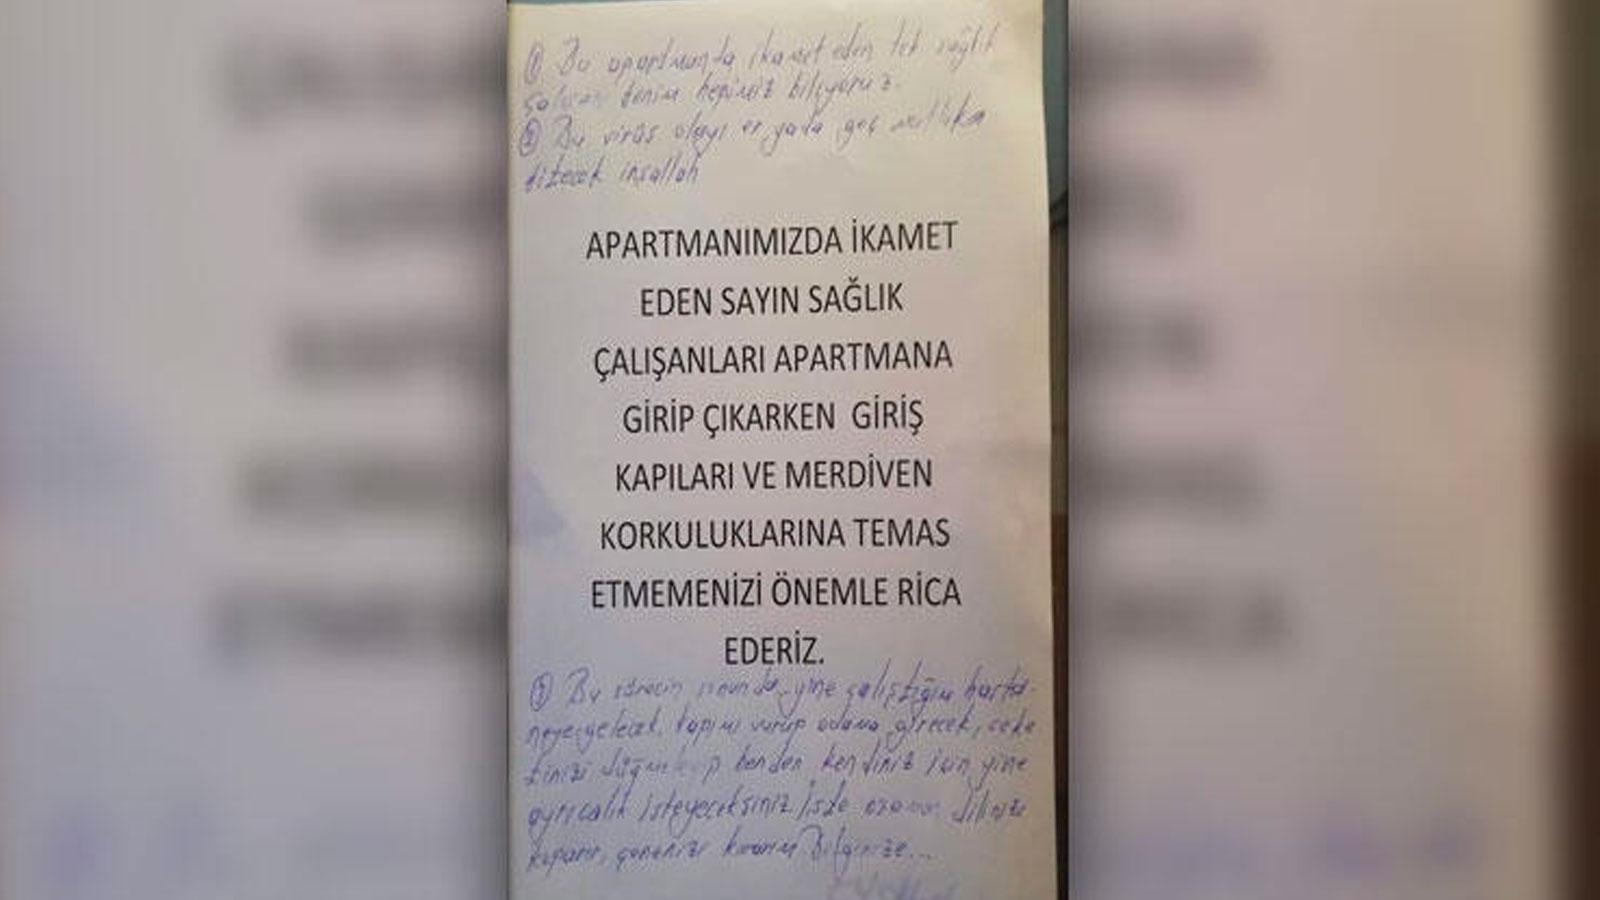 ① Bu apartmanda ikamet eden tek sağlık
çalışanı benim hepimiz biliyoruz.
② Bu virüs olayı er yada geç mutlaka
bitecek inşallah
APARTMANIMIZDA İKAMET
EDEN SAYIN SAĞLIK
ÇALIŞANLARI APARTMANA
GİRİP ÇIKARKEN GİRİŞ
KAPILARI VE MERDİVEN
KORKULUKLARINA TEMAS
ETMEMENİZİ ÖNEMLE RİCA
EDERİZ.
③ Bu sürecin sonunda yine çalıştığım hasta-
neye gelecek, kapımı vurup odama girecek, ceke
tinizi düğmeleyip benden kendiniz için yine
ayrıcalık isteyeceksiniz. İşte o zaman dilinizi
koparır, çenenizi kırarım Bilginize...